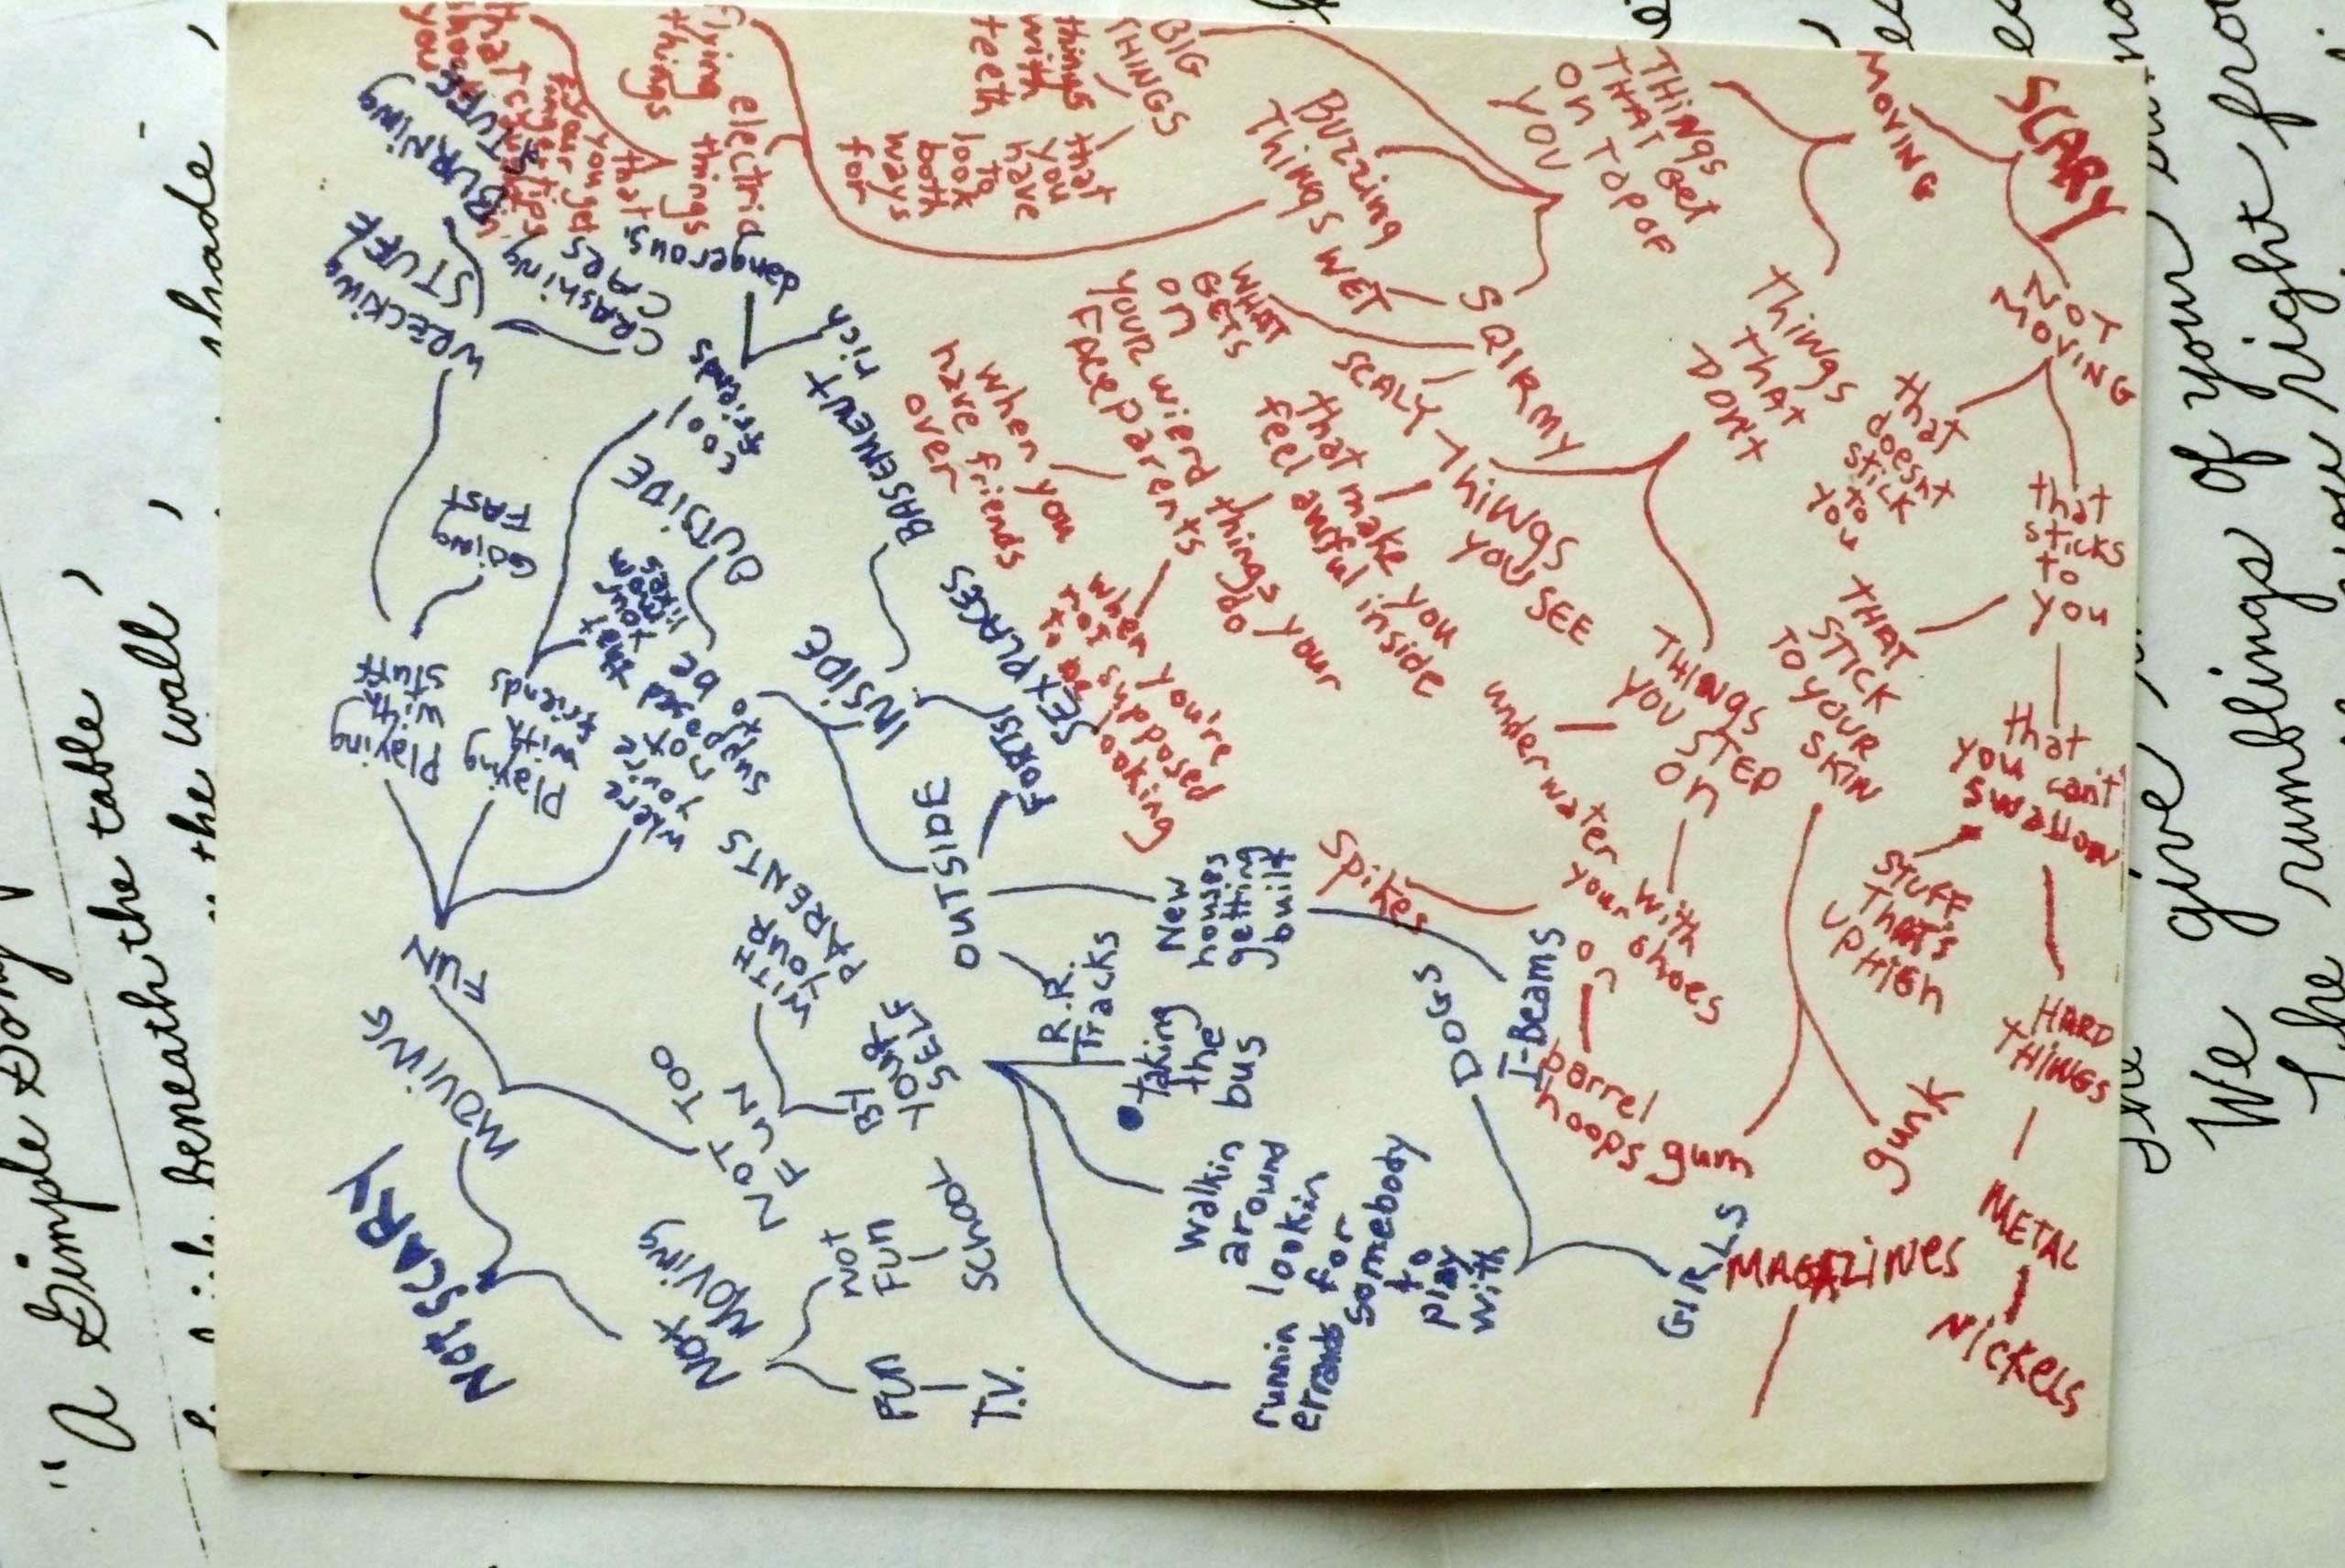 SCARY
MOVING
NOT
MOVING
THINGS
THAT GET
ON TOP OF
YOU
Things
that
DON'T
that
doesnt
stick
to
you
that
sticks
to
you
THAT
STICK
TO YOUR
SKIN
that
you can't
swallow
STUFF
THAT'S
UP HIGH
HARD
THINGS
METAL
Nickels
gunk
gum
MAGAZINES
BIG
THINGS
things
with
teeth
that
you
have
to
look
both
ways
for
Buzzing
Things
flying
things
electric
things
that
you get
WET
SQIRMY
SCALY
WHAT
GETS
on
YOUR
FACE
THiNgs
YOU SEE
that make you
feel awful inside
wierd things your
parents do
when you
have friends
over
when you're
not supposed
to be looking
THINGS
YOU STEP
on
under water
with
your shoes
on
Spikes
barrel
hoops
NOT SCARY
MOVING
NOT
MOVING
FUN
T.V.
NOT
FUN
SCHOOL
FUN
NOT TOO
FUN
WITH
YOUR
PARENTS
BY
YOUR
SELF
taking
the
bus
Walkin
around
lookin
for
somebody
to
play
with
runnin
errands
DOGS
GIRLS
Playing
with
stuff
GOING
FAST
WRECKING
STUFF
BURNING
STUFF
CRASHING
CARS
Playing
with
friends
cool
friends
dangerous
rich
where
you're
not
supposed
to be
that
your
mom
likes
OUTSIDE
INSIDE
INSIDE
BASEMENT
FORTS!
SEX PLACES
OUTSIDE
R.R.
Tracks
New
houses
getting
built
I-Beams
"A Simple Song
beneath the table
the wall
shade
We give
The rumblings of your
you right from